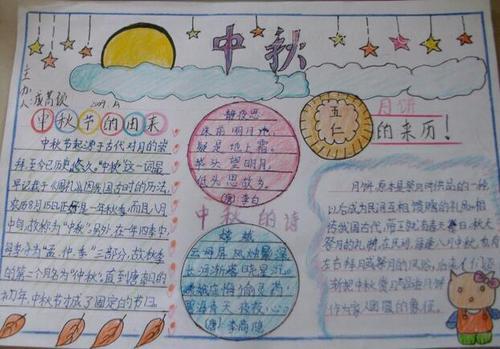 中秋
主办人:
中秋节的由来
中秋节起源于古代对月的崇
拜至今已历史悠久。"中秋"这一词最
早记载于《周礼》因我国古时的历法,
农历8月15日正好是一年秋季,而且八月
中旬,故称为"中秋"另外,在一年四季中
每季分为"孟、仲、季"三部分,故秋季
的第二个月名为"仲秋",直到唐朝的
初年,中秋节才成了固定的节日。
静夜思
床前明月光
疑是地上霜。
举头望明月,
低头思故乡。
(唐) 李白
中秋的诗
嫦娥
云母屏风烛影深
长河渐落晓星沉。
嫦娥应悔偷灵药
碧海青天夜夜心。
(唐) 李商隐
五仁
月饼
的来历!
月饼原本是祭月时供品的一种
以后成为民间互相馈赠的礼品。相
传我国古代,帝王就有春天祭日,秋天
祭月的礼制,在民间,每逢八月中秋,也有
左右拜月或祭月的风俗,后来人们逐
渐把中秋赏月与品尝月饼
作为家人团圆的象征。